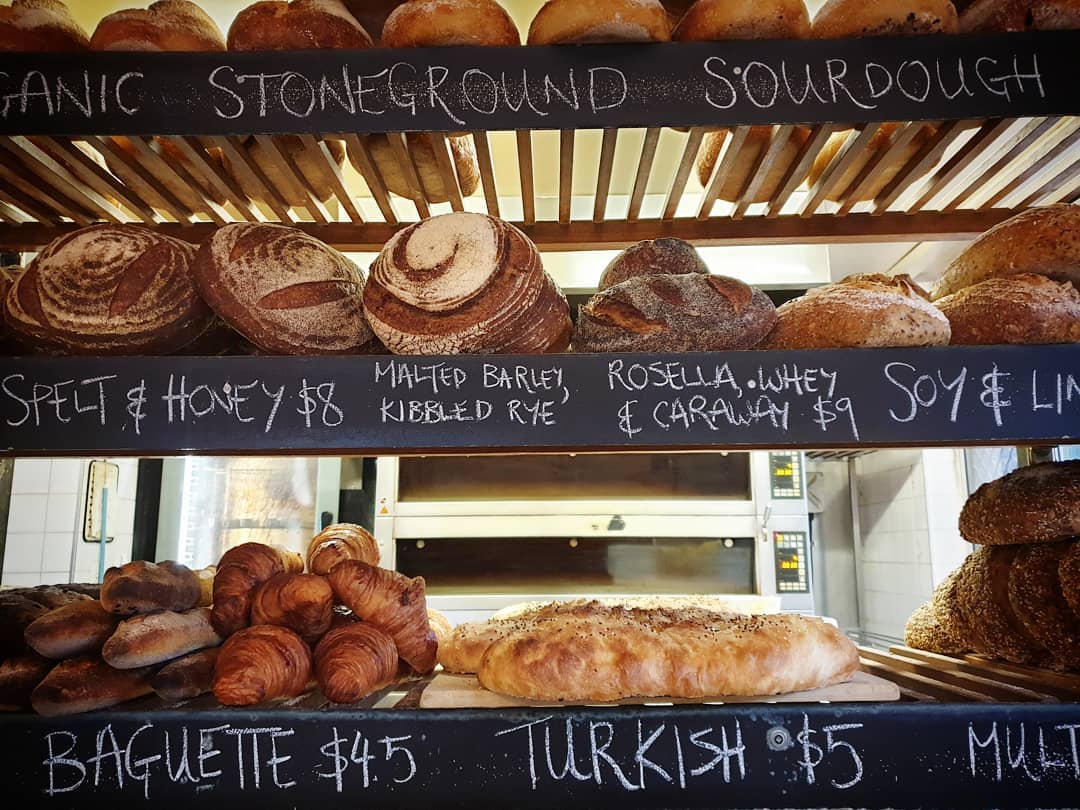 GANIC STONEGROUND SOURDOUGH
SPELT & HONEY $8
MALTED BARLEY,
KIBBLED RYE
ROSELLA, WHEY
& CARAWAY $9
SOY & LIN
BAGUETTE $4.5
TURKISH $5
MULT